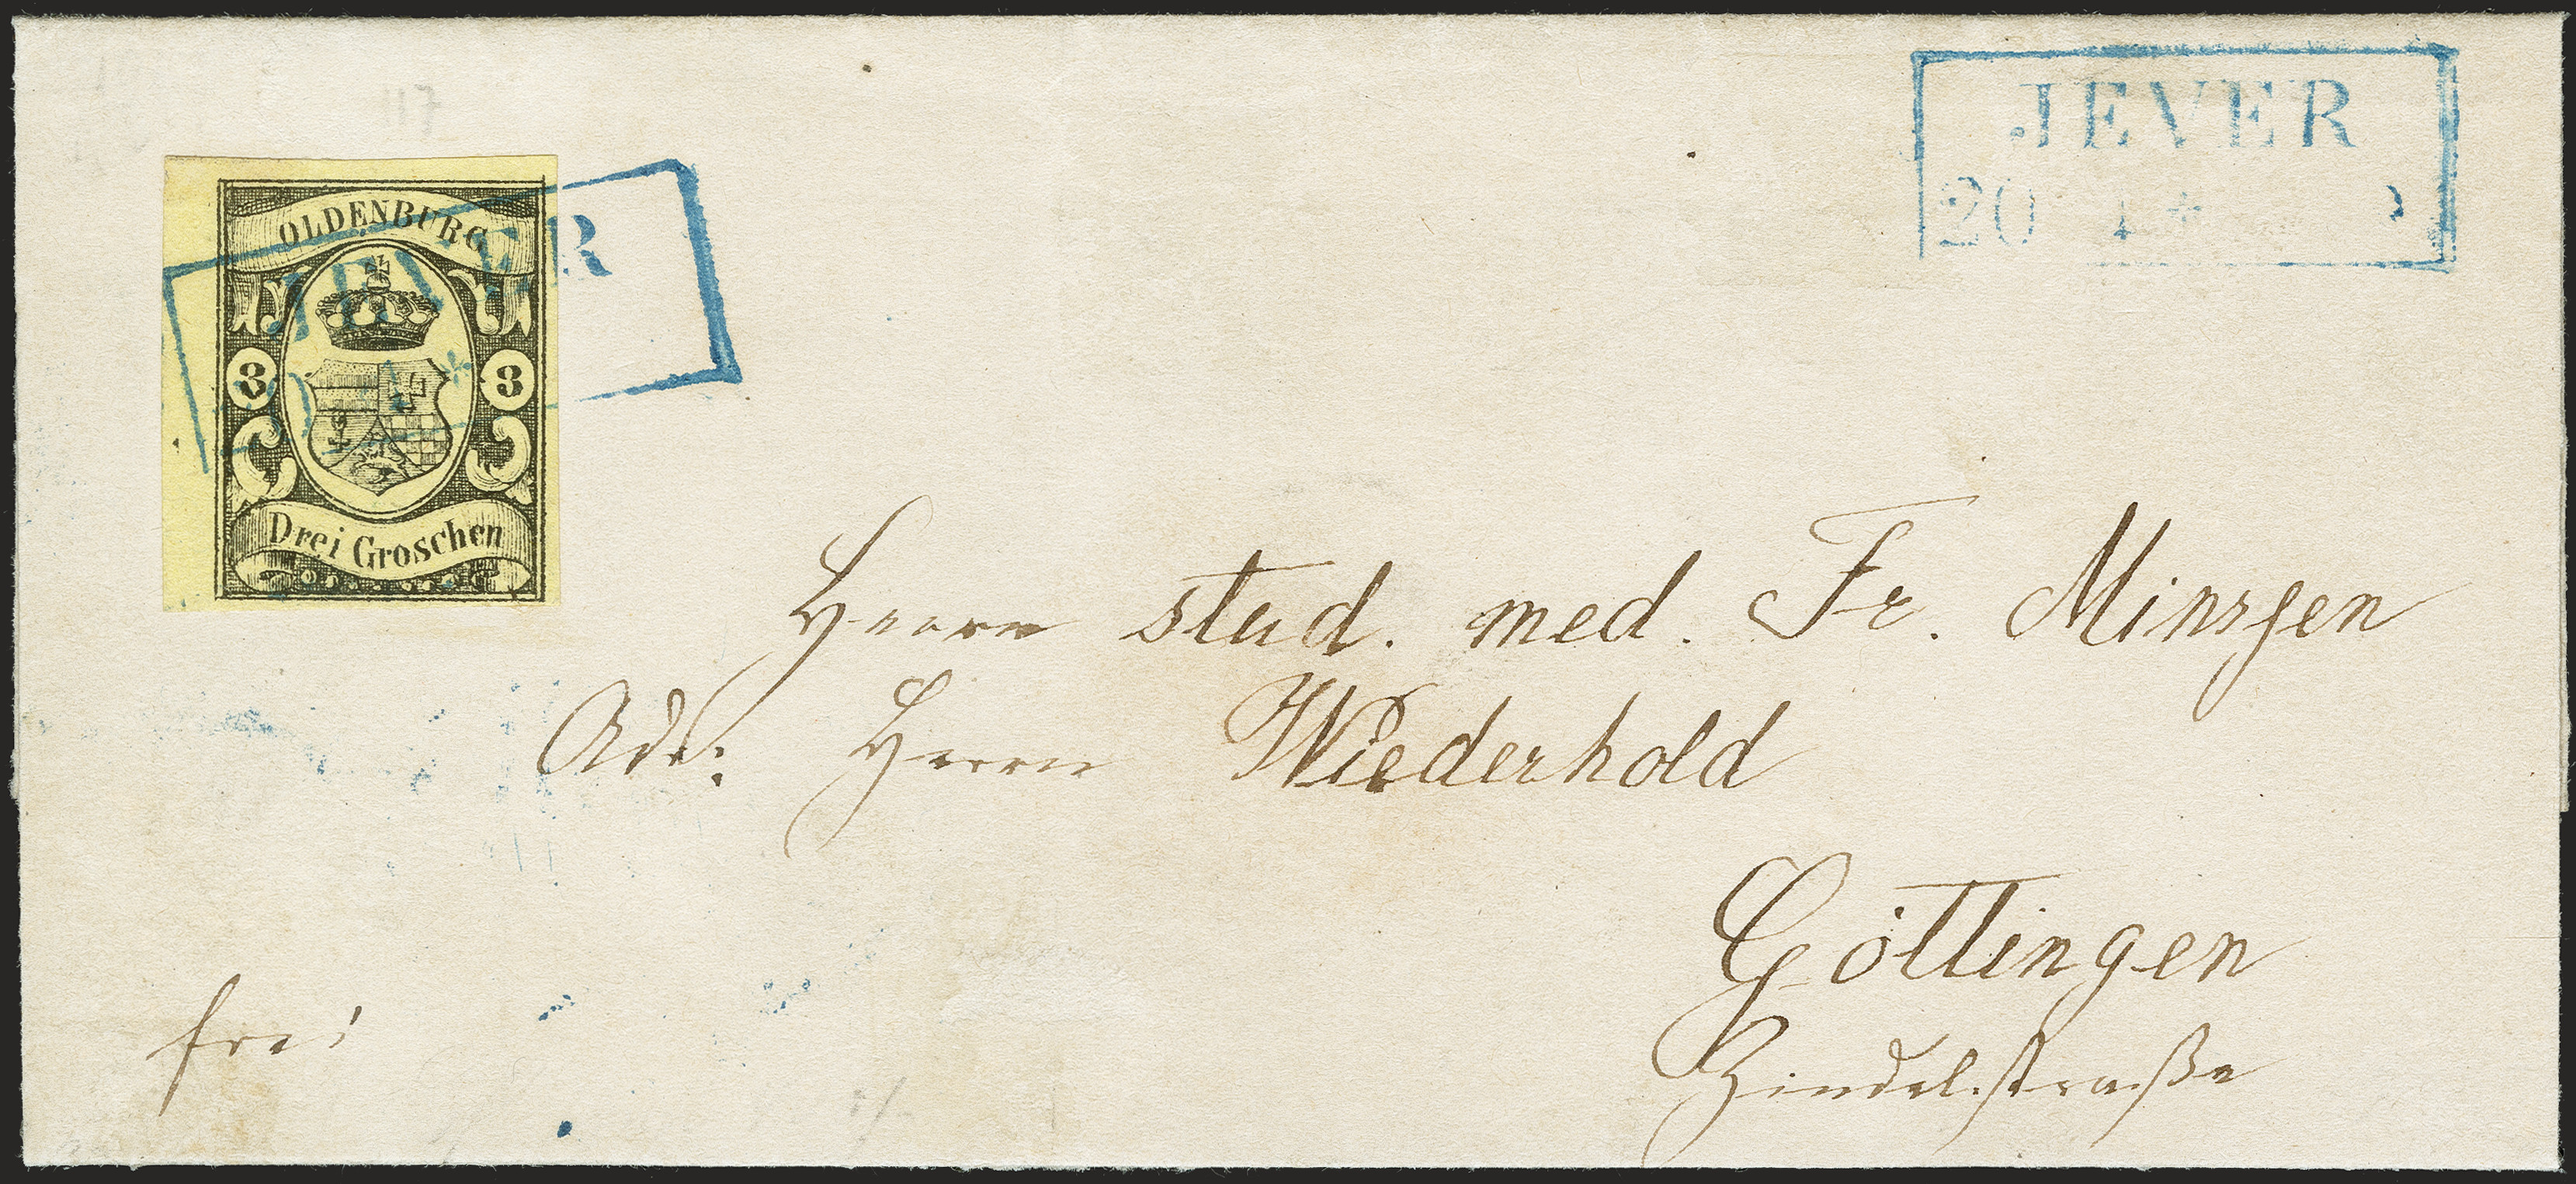 JEVER
20 1 *
OLDENBURG
JEVER
3 3
Drei Groschen
Herrn stud. med. Fr. Minssen
Adr: Herrn Wiederhold
Göttingen
Zindelstraße
frei